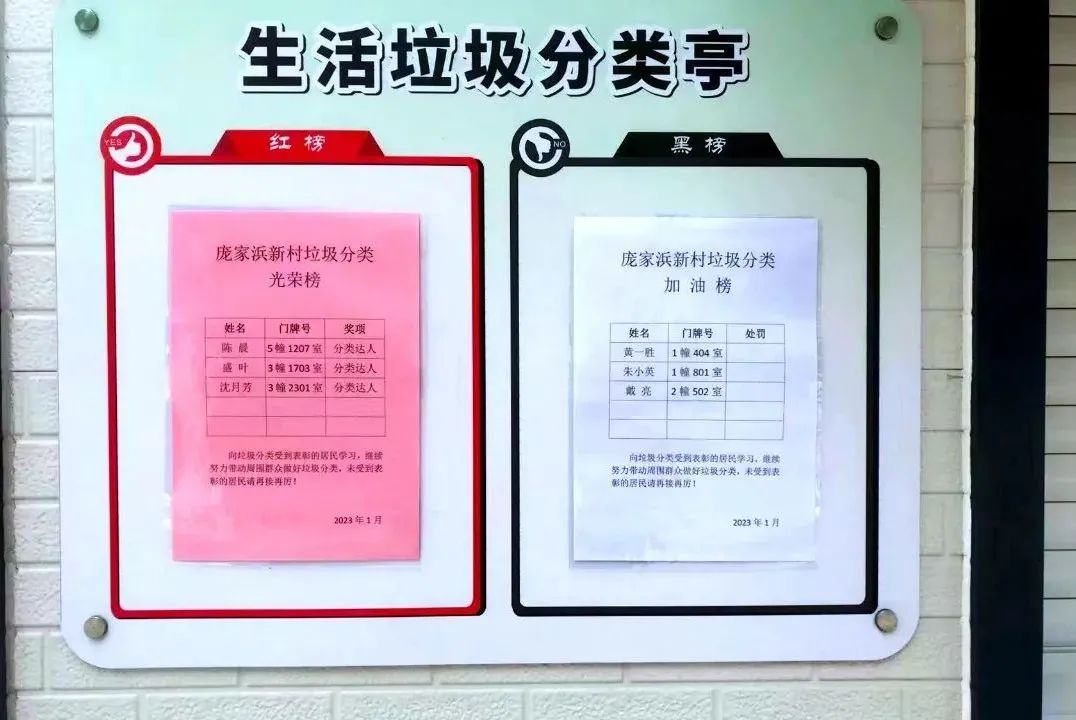 生活垃圾分类亭
YES
红榜
庞家浜新村垃圾分类
光荣榜
姓名 门牌号 奖项
陈 晨 5幢1207室 分类达人
盛 叶 3幢1703室 分类达人
沈月芳 3幢2301室 分类达人
向垃圾分类受到表彰的居民学习，继续
努力带动周围群众做好垃圾分类，未受到表
彰的居民请再接再厉！
2023年1月
NO
黑榜
庞家浜新村垃圾分类
加 油 榜
姓名 门牌号 处罚
黄一胜 1幢404室
朱小英 1幢801室
戴 亮 2幢502室
向垃圾分类受到表彰的居民学习，继续
努力带动周围群众做好垃圾分类，未受到表
彰的居民请再接再厉！
2023年1月